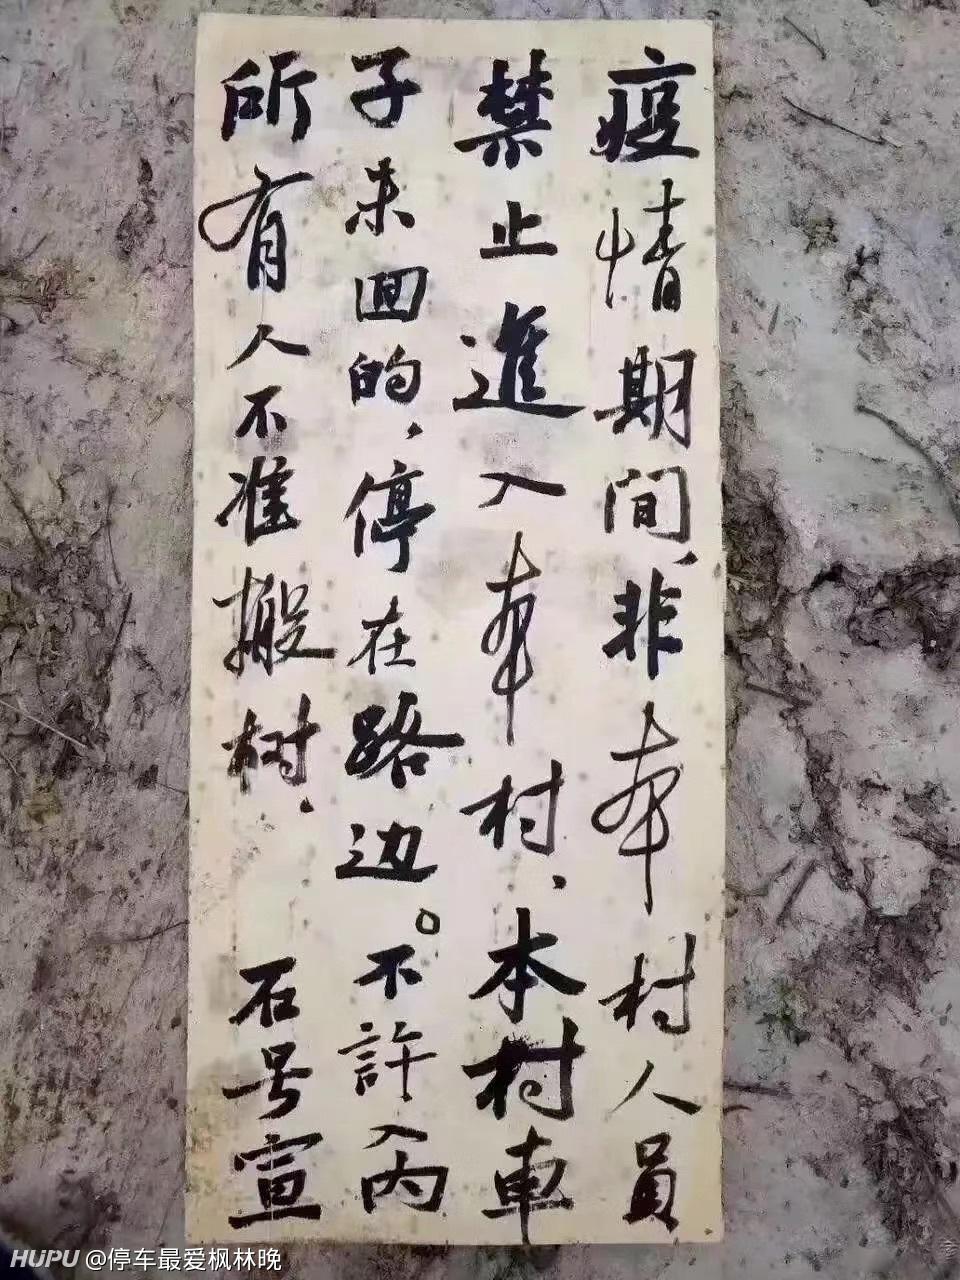 疫情期间,非本村人员
禁止進入本村,本村車
子未回的,停在路边。不許入内
所有人不准搬树.
石号宣
HUPU @停车最爱枫林晚